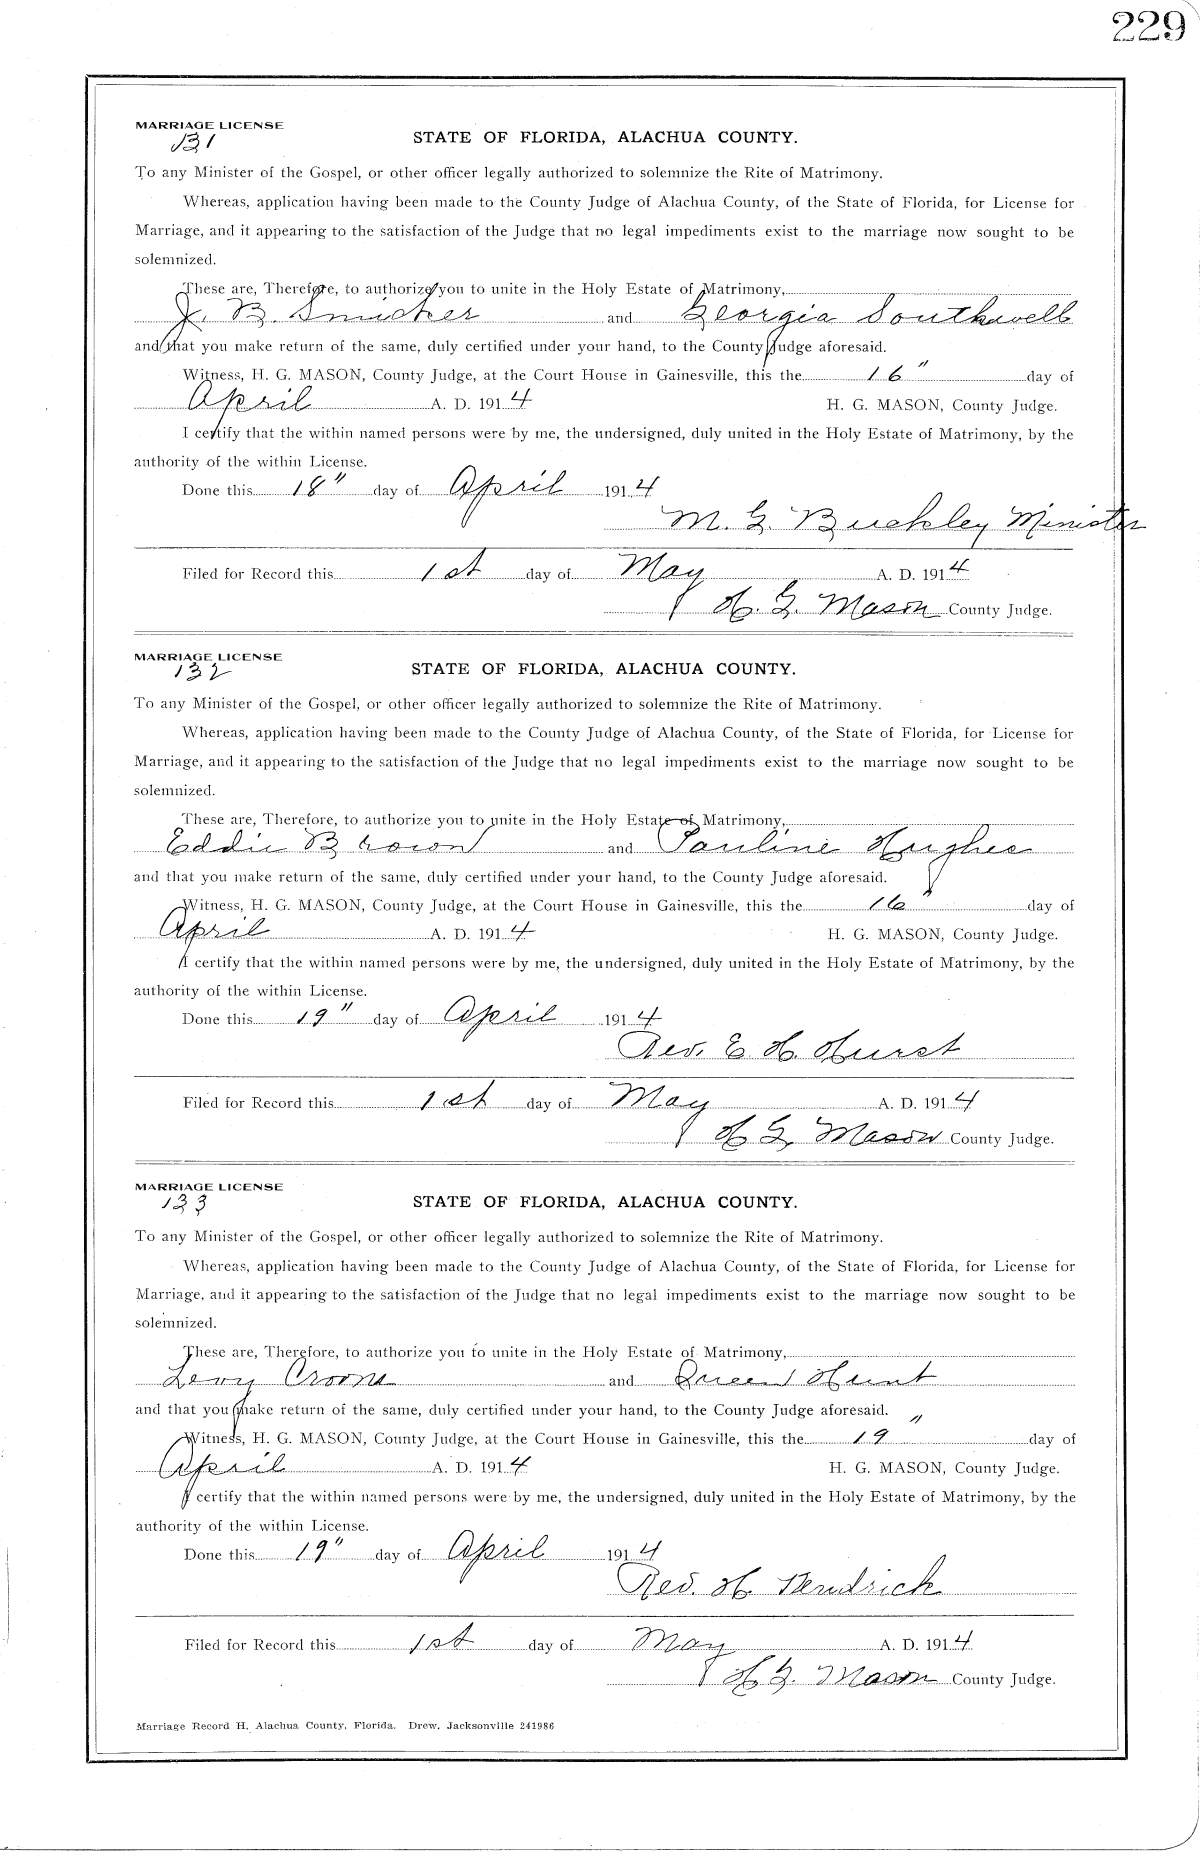 229
MARRIAGE LICENSE
131
STATE OF FLORIDA, ALACHUA COUNTY.
To any Minister of the Gospel, or other officer legally authorized to solemnize the Rite of Matrimony.
Whereas, application having been made to the County Judge of Alachua County, of the State of Florida, for License for
Marriage, and it appearing to the satisfaction of the Judge that no legal impediments exist to the marriage now sought to be
solemnized.
These are, Therefore, to authorize you to unite in the Holy Estate of Matrimony,
J. B. and Georgia Southwell
and that you make return of the same, duly certified under your hand, to the County Judge aforesaid.
Witness, H. G. MASON, County Judge, at the Court House in Gainesville, this the 16" day of
April A. D. 1914 H. G. MASON, County Judge.
I certify that the within named persons were by me, the undersigned, duly united in the Holy Estate of Matrimony, by the
authority of the within License.
Done this 18" day of April 1914
M. G. Buckley Minister
Filed for Record this 1st day of May A. D. 1914
H. G. Mason County Judge.
MARRIAGE LICENSE
132
STATE OF FLORIDA, ALACHUA COUNTY.
To any Minister of the Gospel, or other officer legally authorized to solemnize the Rite of Matrimony.
Whereas, application having been made to the County Judge of Alachua County, of the State of Florida, for License for
Marriage, and it appearing to the satisfaction of the Judge that no legal impediments exist to the marriage now sought to be
solemnized.
These are, Therefore, to authorize you to unite in the Holy Estate of Matrimony,
Eddie Brown and Pauline Hughes
and that you make return of the same, duly certified under your hand, to the County Judge aforesaid.
Witness, H. G. MASON, County Judge, at the Court House in Gainesville, this the 16" day of
April A. D. 1914 H. G. MASON, County Judge.
I certify that the within named persons were by me, the undersigned, duly united in the Holy Estate of Matrimony, by the
authority of the within License.
Done this 19" day of April 1914
Rev. E. H. Hurst
Filed for Record this 1st day of May A. D. 1914
H. G. Mason County Judge.
MARRIAGE LICENSE
133
STATE OF FLORIDA, ALACHUA COUNTY.
To any Minister of the Gospel, or other officer legally authorized to solemnize the Rite of Matrimony.
Whereas, application having been made to the County Judge of Alachua County, of the State of Florida, for License for
Marriage, and it appearing to the satisfaction of the Judge that no legal impediments exist to the marriage now sought to be
solemnized.
These are, Therefore, to authorize you to unite in the Holy Estate of Matrimony,
Levy Croons and Queen Hunt
and that you make return of the same, duly certified under your hand, to the County Judge aforesaid.
Witness, H. G. MASON, County Judge, at the Court House in Gainesville, this the 19" day of
April A. D. 1914 H. G. MASON, County Judge.
I certify that the within named persons were by me, the undersigned, duly united in the Holy Estate of Matrimony, by the
authority of the within License.
Done this 19" day of April 1914
Rev. H. Kendrick
Filed for Record this 1st day of May A. D. 1914
H. G. Mason County Judge.
Marriage Record H, Alachua County, Florida. Drew, Jacksonville 241986